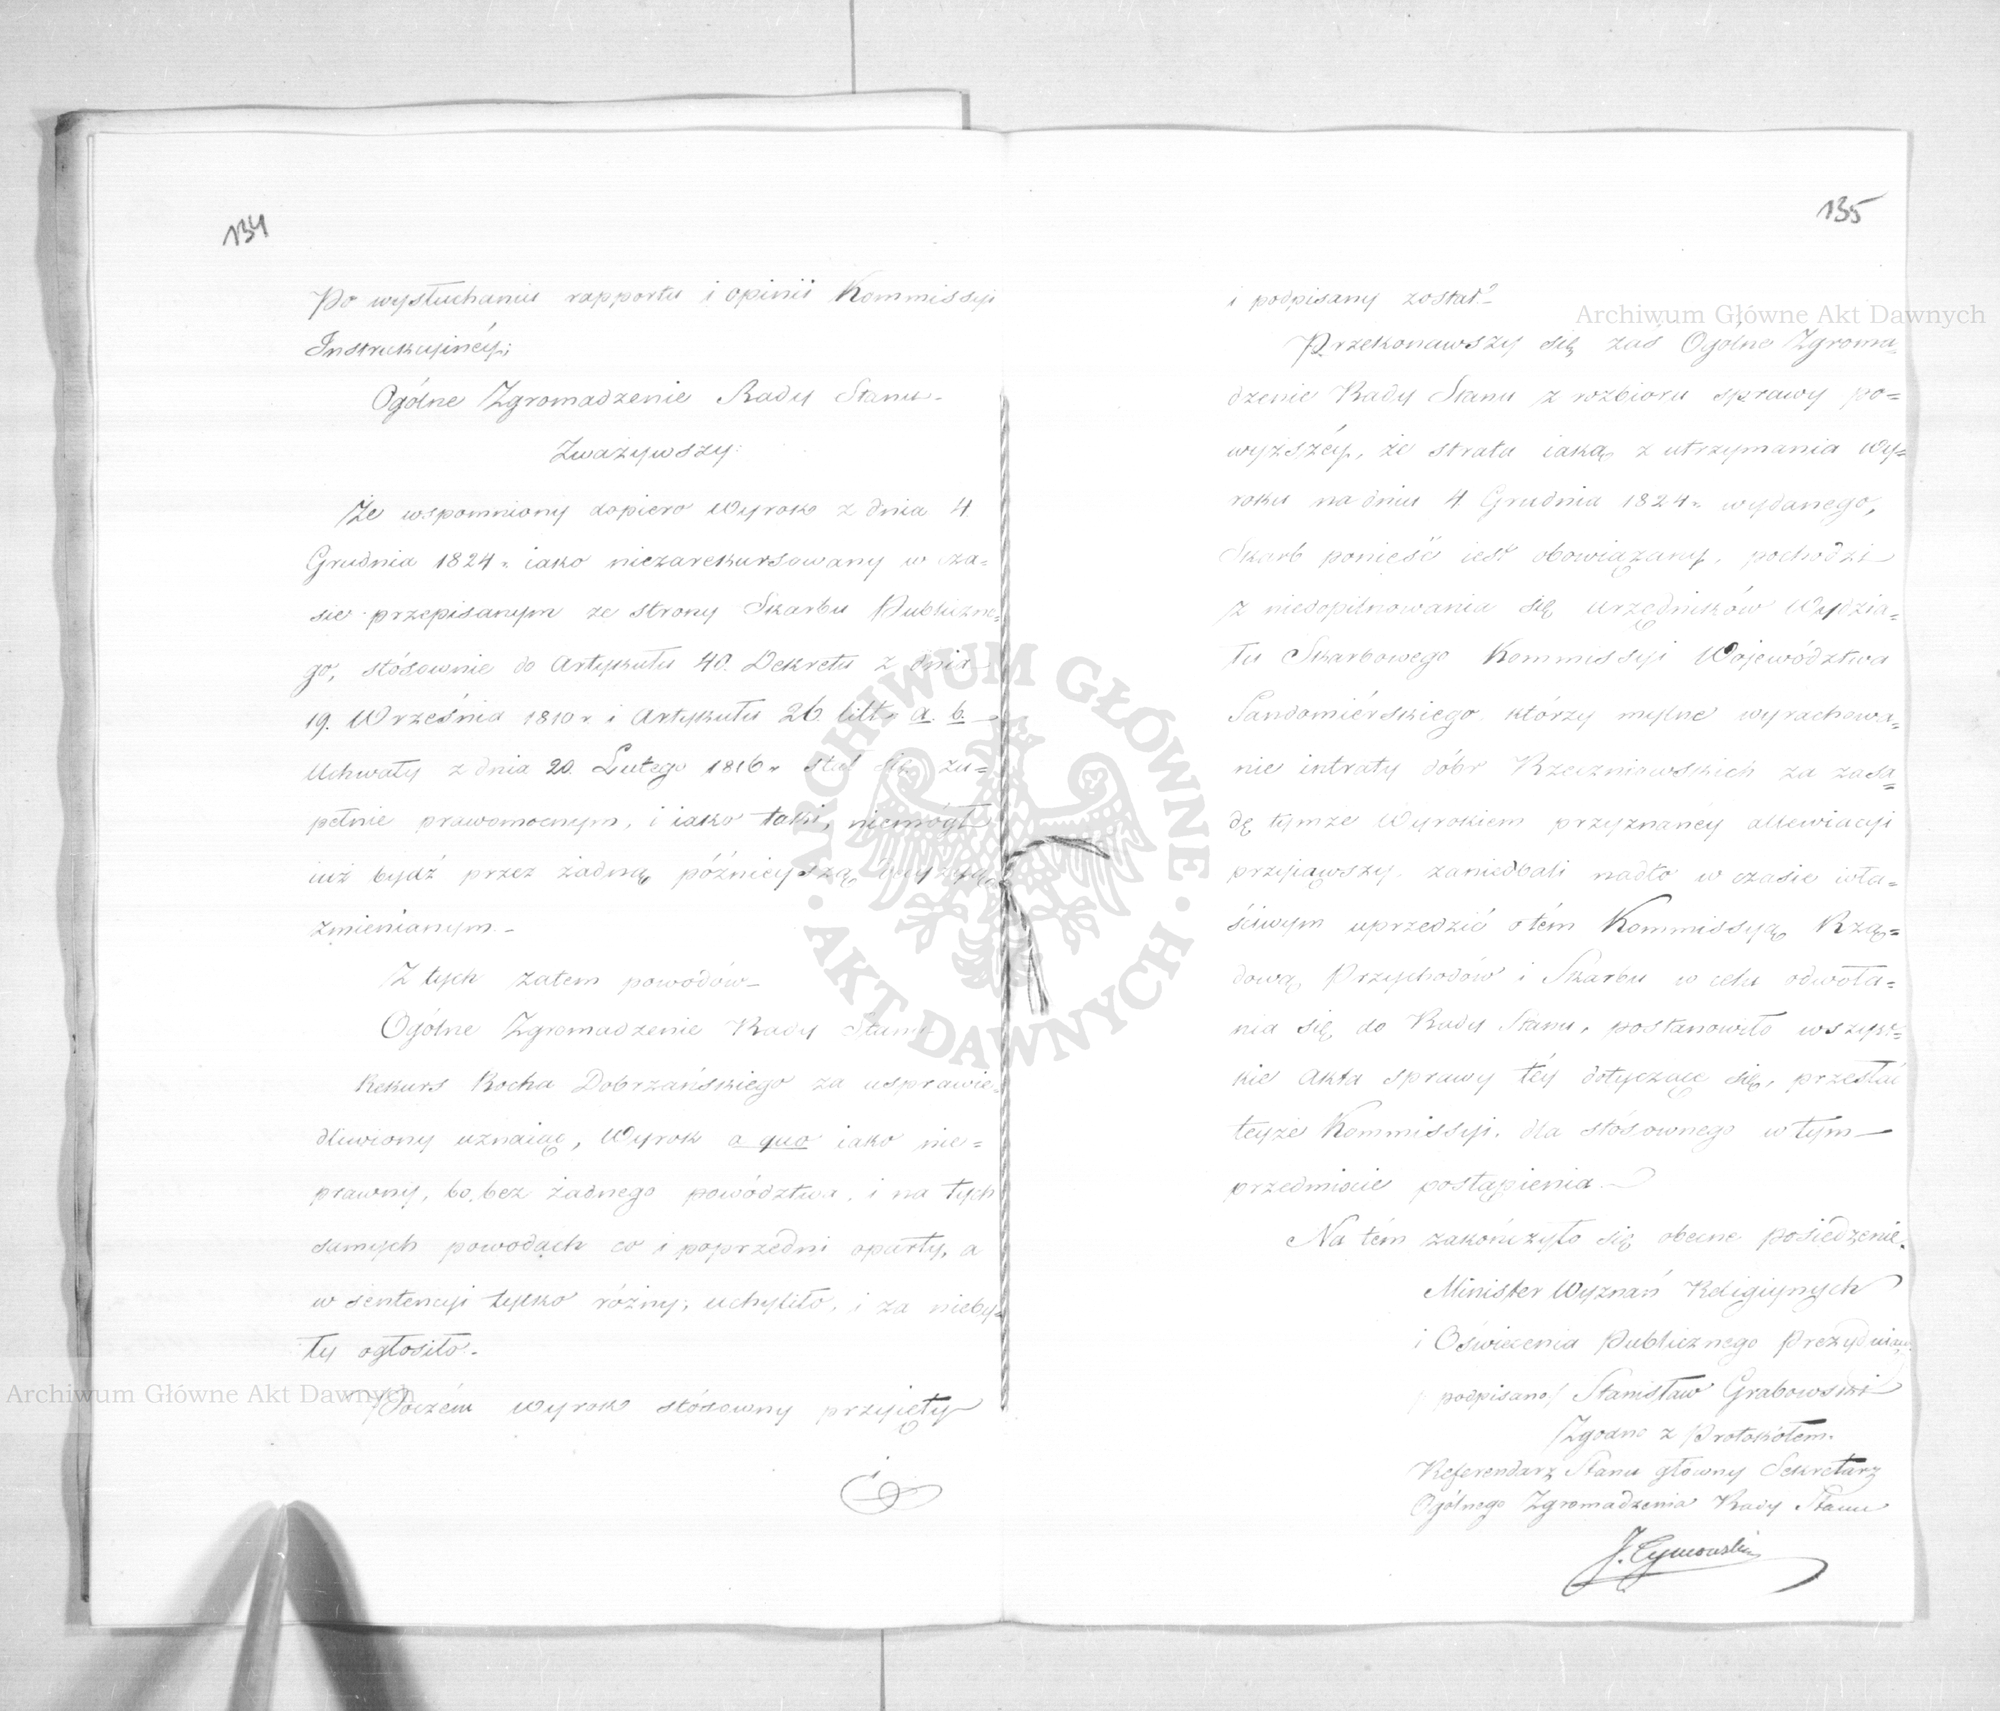 134
Po wysłuchaniu rapportu i opinii Kommissyi
Instrukcyinéy;
Ogólne Zgromadzenie Rady Stanu-
Zważywszy:
Że wspomniony dopiero Wyrok z dnia 4
Grudnia 1824 r. iako niezarekursowany w cza=
sie przepisanym ze strony Skarbu Publiczne=
go, stósownie do Artykułu 40. Dekretu z dnia
19. Września 1810 r. i Artykułu 26. litt. a. b. —
Uchwały z dnia 20. Lutego 1816 r. stał się zu=
pełnie prawomocnym, i iako taki, niemógł
iuż bydź przez żadną późnieyszą Decyzyą
zmienianym.-
Z tych zatem powodów-
Ogólne Zgromadzenie Rady Stanu
Rekurs Rocha Dobrzańskiego za usprawie=
dliwiony uznaiąc, Wyrok a quo iako nie=
prawny, bo bez żadnego powództwa, i na tych
samych powodach co i poprzedni oparty, a
w sentencyi tylko różny; uchyliło, i za nieby=
ły ogłosiło.-
Poczém wyrok stósowny przyięty
135
i podpisany został.-
Przekonawszy się zaś Ogólne Zgroma=
dzenie Rady Stanu z rozbioru sprawy po=
wyższéy, że strata iaką z utrzymania Wy=
roku na dniu 4 Grudnia 1824 r. wydanego,
Skarb ponieść iest obowiązany, pochodzi
z niedopilnowania się urzędników Wydzia=
łu Skarbowego Kommissyi Województwa
Sandomiérskiego, którzy mylne wyrachowa=
nie intraty dóbr Rzeczniowskich za zasa=
dę tymże Wyrokiem przyznanéy allewiacyi
przyiąwszy, zaniedbali nadto w czasie wła=
ściwym uprzedzić o tém Kommissyą Rzą=
dową Przychodów i Skarbu w celu odwoła=
nia się do Rady Stanu, postanowiło wszyst=
kie Akta sprawy téy dotyczące się, przesłać
teyże Kommissyi, dla stósownego w tym —
przedmiocie postąpienia.—
Na tém zakończyło się obecne posiedzenie.
Minister Wyznań Religiynych
i Oświecenia Publicznego Prezyduiący
/podpisano/ Stanisław Grabowski
Zgodno z Protokółem.
Referendarz Stanu główny Sekretarz
Ogólnego Zgromadzenia Rady Stanu
J. Tymowski
Archiwum Główne Akt Dawnych
Archiwum Główne Akt Dawnych
ARCHIWUM GŁÓWNE · AKT DAWNYCH ·